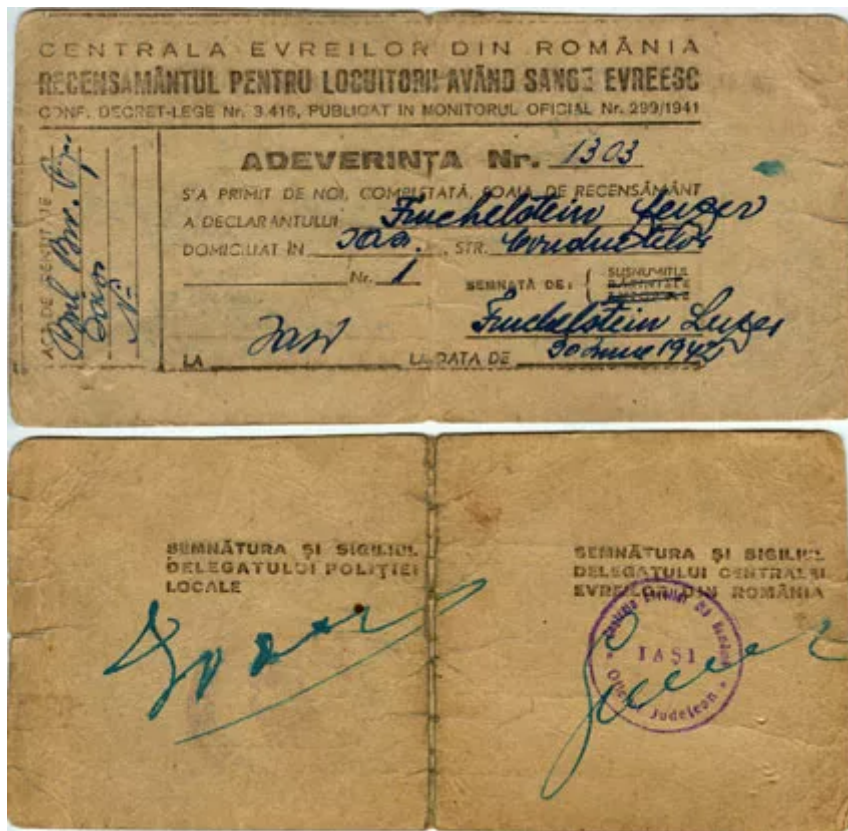 CENTRALA EVREILOR DIN ROMÂNIA
RECENSAMÂNTUL PENTRU LOCUITORII AVÂND SANGE EVREESC
CONF. DECRET-LEGE Nr. 3.416, PUBLICAT IN MONITORUL OFICIAL Nr. 299/1941
ACT DE IDENTITATE
ADEVERINȚA Nr. 1303
S'A PRIMIT DE NOI, COMPLETATĂ, FOAIA DE RECENSĂMÂNT
A DECLARANTULUI Fruchelstein Leizer
DOMICILIAT ÎN Iași, STR. Conductelor
Nr. 1 SEMNATĂ DE: { SUSNUMITUL
PĂRINTELE
Fruchelstein Leizer
LA Iași LA DATA DE 30 1942
SEMNĂTURA ȘI SIGILIUL
DELEGATULUI POLIȚIEI
LOCALE
SEMNĂTURA ȘI SIGILIUL
DELEGATULUI CENTRALEI
EVREILOR DIN ROMÂNIA
Centrala Evreilor din România
IAȘI
Oficiul Județean